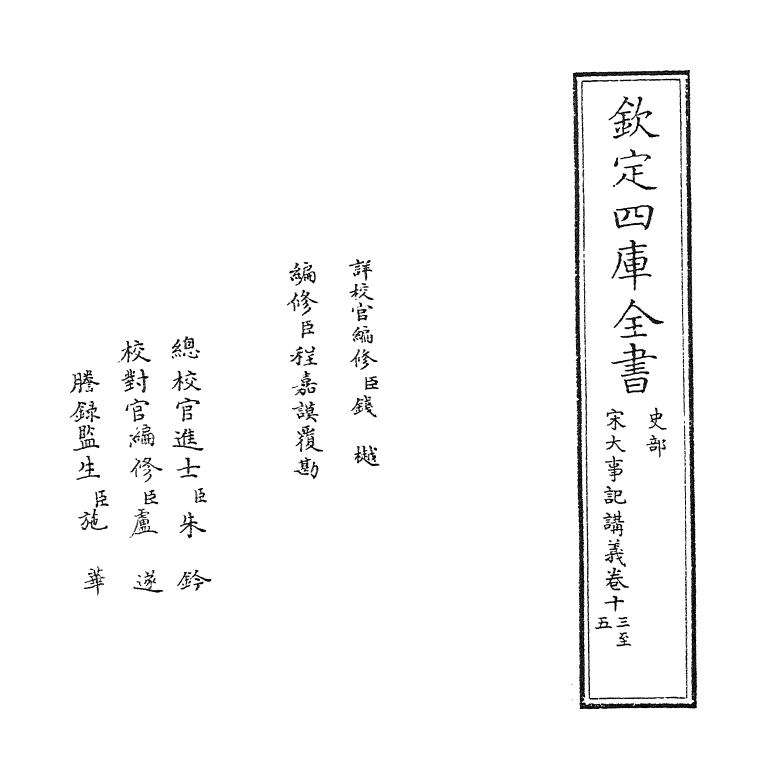 欽定四庫全書
史部
宋大事記講義卷十三至五
詳校官編修臣錢樾
編修臣程嘉謨覆勘
總校官進士臣朱鈐
校對官編修臣盧遂
謄錄監生臣施華